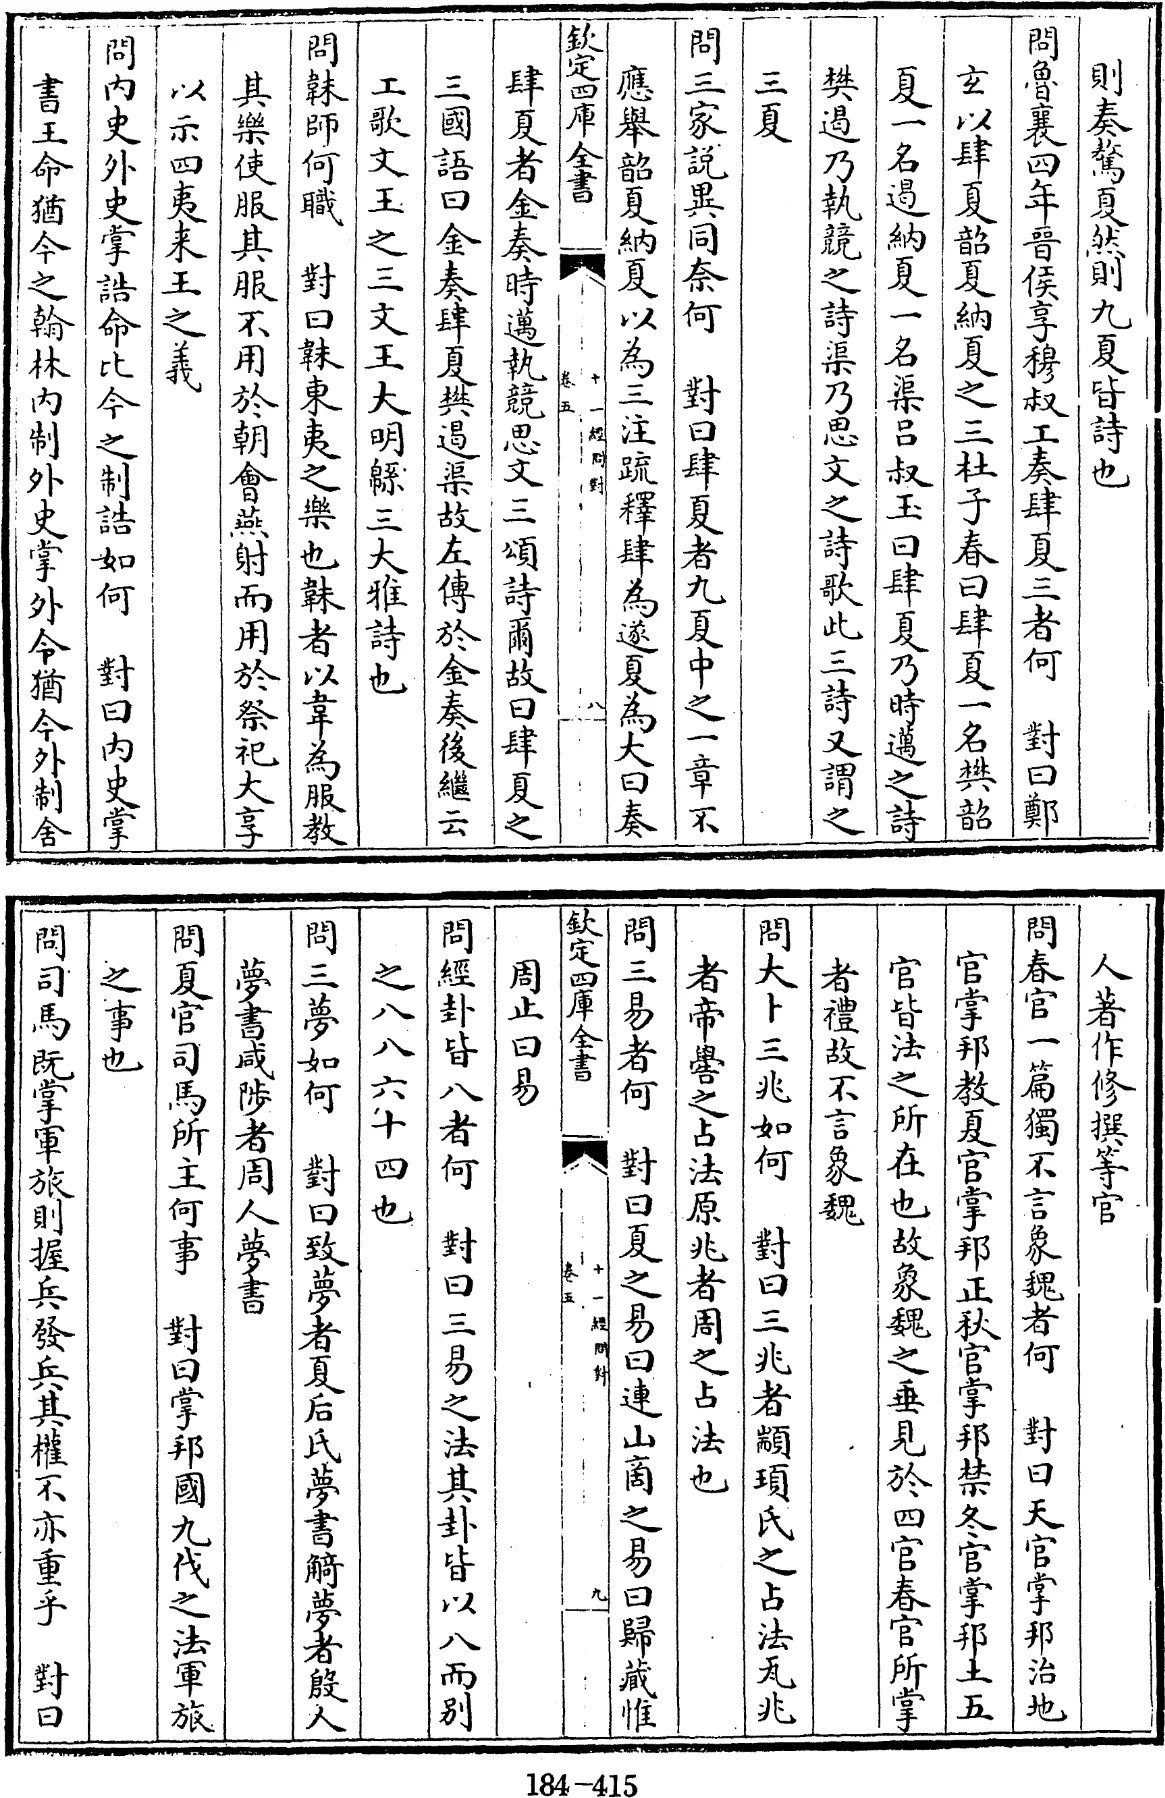 則奏驁夏然則九夏皆詩也
問魯襄四年晉侯享穆叔工奏肆夏三者何　對曰鄭
玄以肆夏韶夏納夏之三杜子春曰肆夏一名樊韶
夏一名遏納夏一名渠呂叔玉曰肆夏乃時邁之詩
樊遏乃執競之詩渠乃思文之詩歌此三詩又謂之
三夏
問三家説異同奈何　對曰肆夏者九夏中之一章不
應舉韶夏納夏以為三注疏釋肆為遂夏為大曰奏
欽定四庫全書
十一經問對
卷五
八
肆夏者金奏時邁執競思文三頌詩爾故曰肆夏之
三國語曰金奏肆夏樊遏渠故左傳於金奏後繼云
工歌文王之三文王大明緜三大雅詩也
問韎師何職　對曰韎東夷之樂也韎者以韋為服教
其樂使服其服不用於朝會燕射而用於祭祀大享
以示四夷来王之義
問内史外史掌誥命比今之制誥如何　對曰内史掌
書王命猶今之翰林内制外史掌外令猶今外制舍
人著作修撰等官
問春官一篇獨不言象魏者何　對曰天官掌邦治地
官掌邦教夏官掌邦正秋官掌邦禁冬官掌邦土五
官皆法之所在也故象魏之垂見於四官春官所掌
者禮故不言象魏
問大卜三兆如何　對曰三兆者顓頊氏之占法瓦兆
者帝嚳之占法原兆者周之占法也
問三易者何　對曰夏之易曰連山商之易曰歸藏惟
欽定四庫全書
十一經問對
卷五
九
周止曰易
問經卦皆八者何　對曰三易之法其卦皆以八而别
之八八六十四也
問三夢如何　對曰致夢者夏后氏夢書觭夢者殷人
夢書咸陟者周人夢書
問夏官司馬所主何事　對曰掌邦國九伐之法軍旅
之事也
問司馬既掌軍旅則握兵發兵其權不亦重乎　對曰
184-415